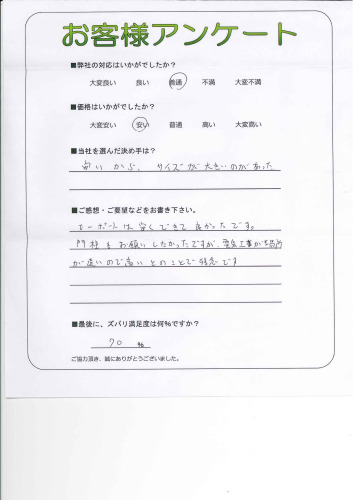 お客様アンケート
■弊社の対応はいかがでしたか？
大変良い 良い 普通 不満 大変不満
■価格はいかがでしたか？
大変安い 安い 普通 高い 大変高い
■当社を選んだ決め手は？
安いから、サイズが大きいのがあった
■ご感想・ご要望などをお書き下さい。
カーポートは安くできて良かったです。
門柱もお願いしたかったですが、電気工事が場所
が遠いので高いとのことで残念です
■最後に、ズバリ満足度は何%ですか？
70 %
ご協力頂き、誠にありがとうございました。